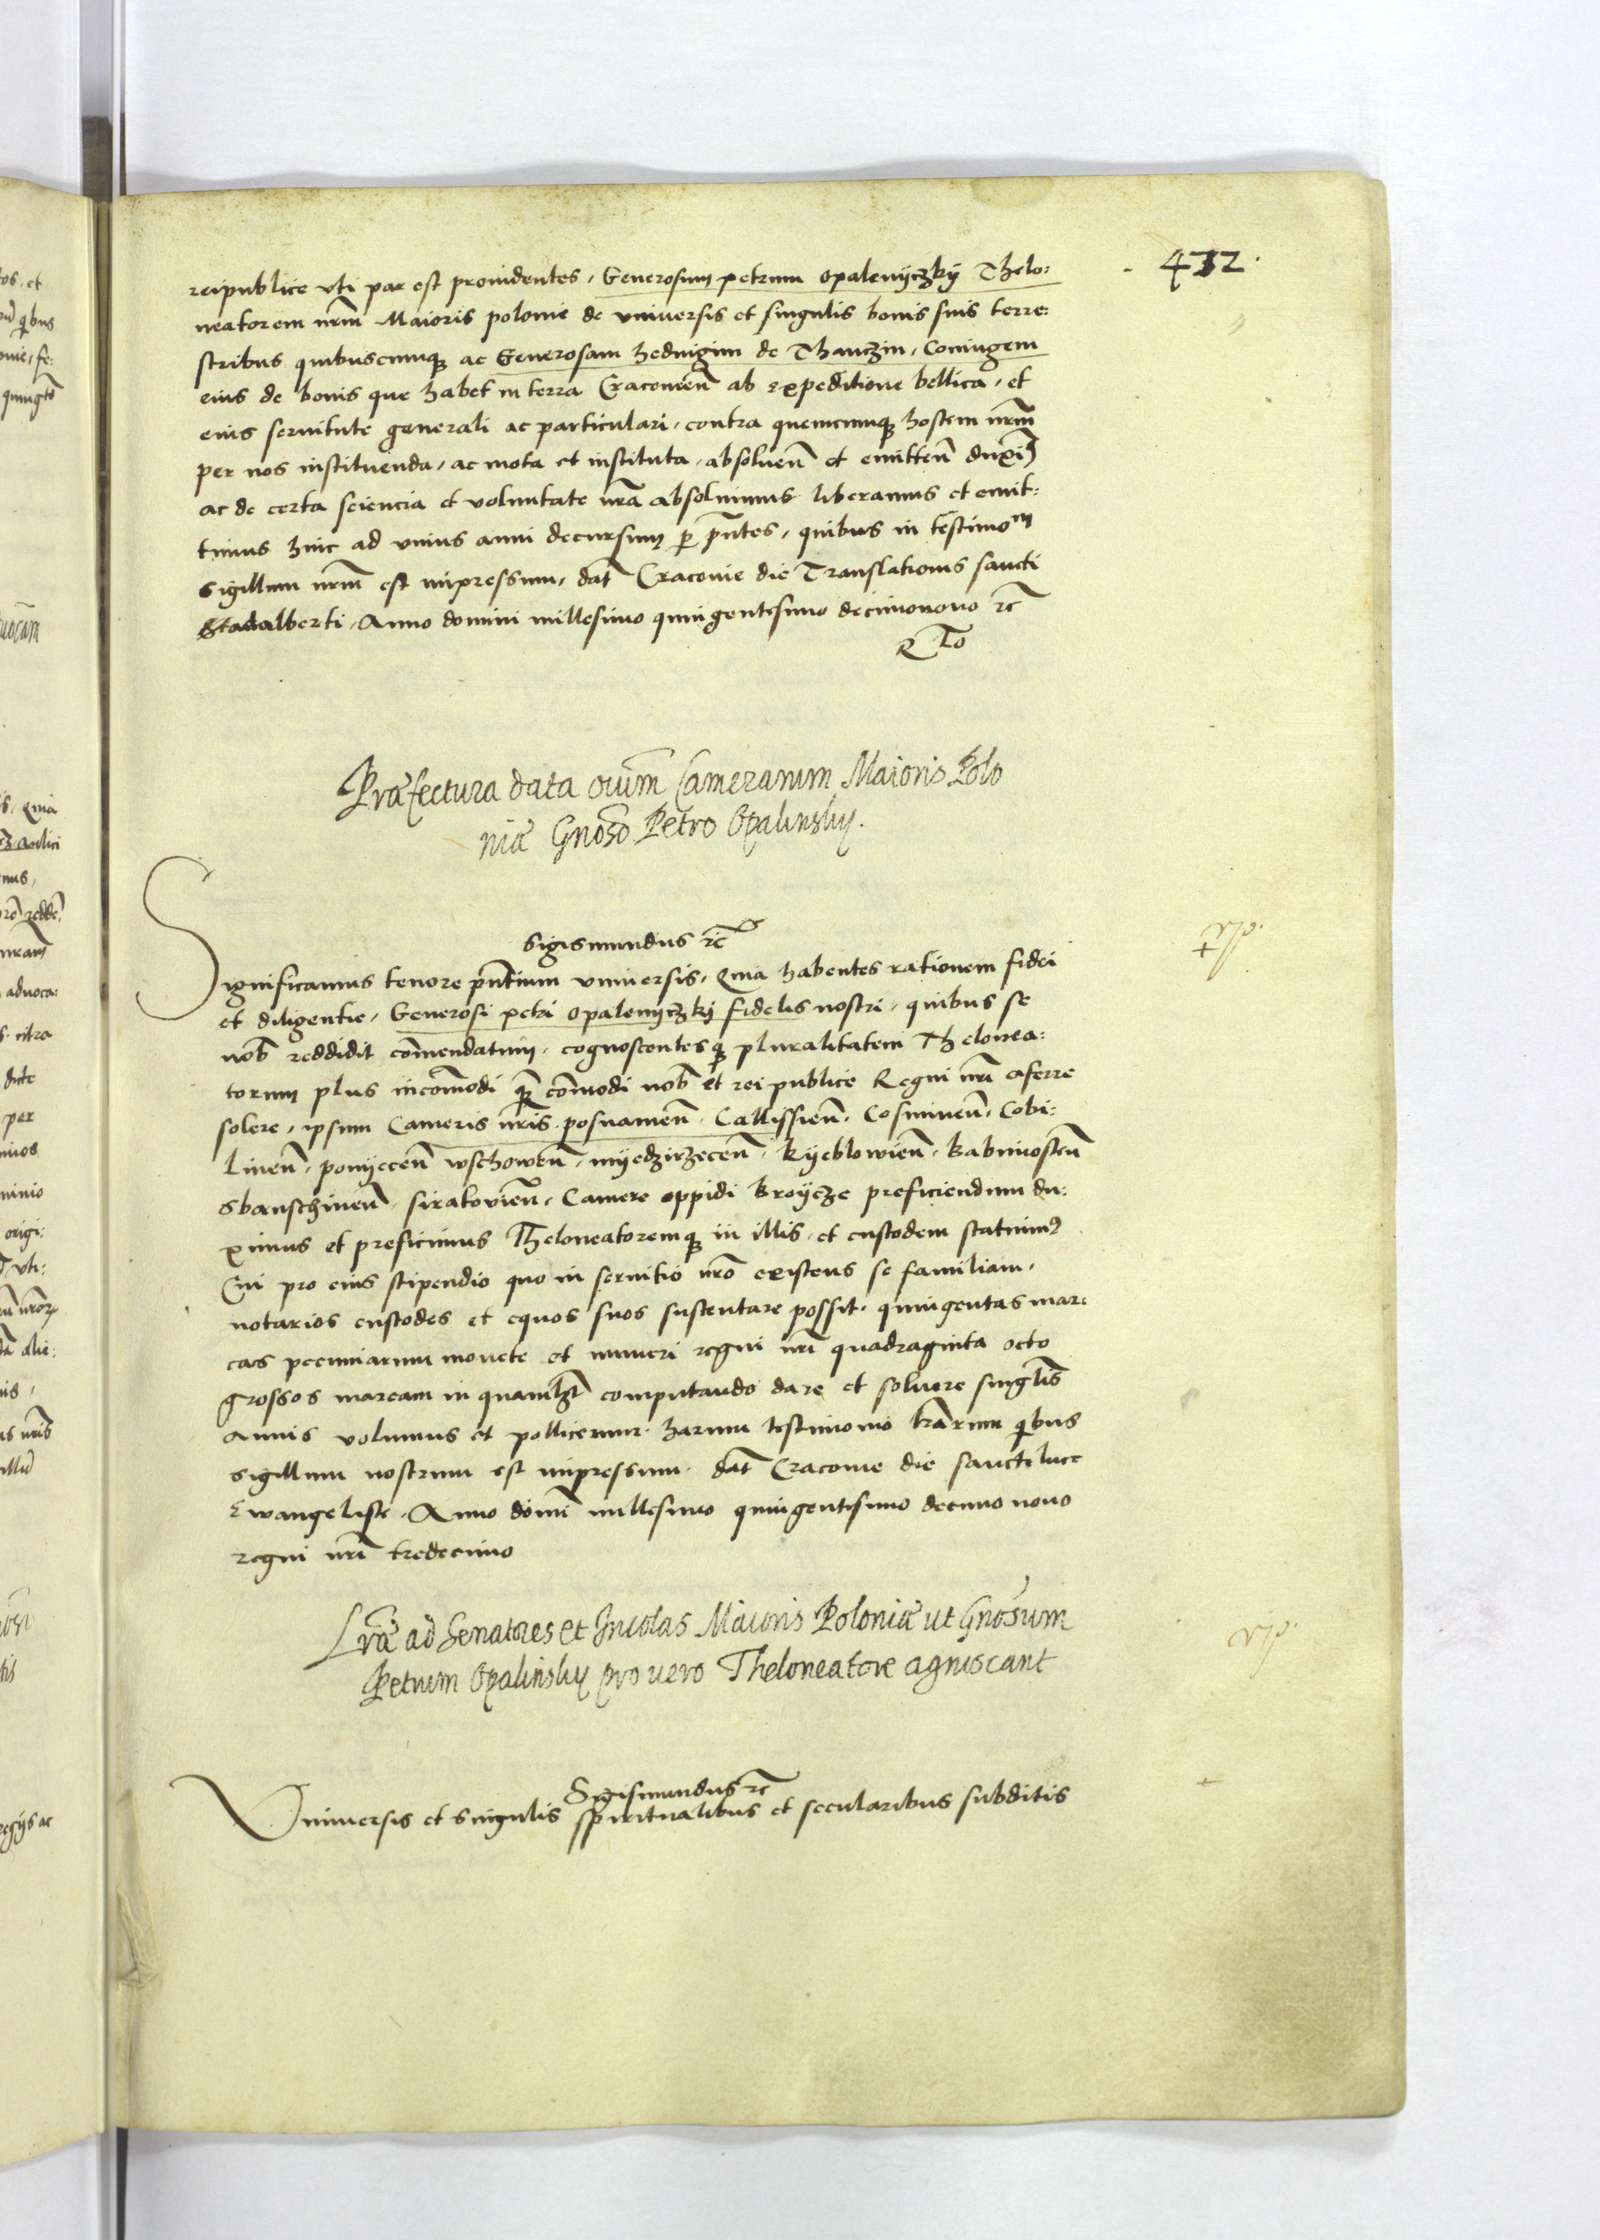 432.
reipublice vti par est prouidentes, Generosum petrum opalenyczky Thelo:
neatorem nrm̃ Maioris polonie de vniuersis et singulis bonis suis terre:
stribus quibuscunque ac Generosam hedwigim de Thanczin, Coniugem
eius de bonis que habet in terra Cracouień ab expeditione bellica, et
eius seruitute generali ac particulari, contra quemcunque hostem nrm̃
per nos instituenda, ac mota et instituta, absoluen̄ et emitten̄ duxim9
ac de certa sciencia et voluntate nrã absoluimus liberamus et emit:
timus hinc ad vnius anni decursum p pñtes, quibus in testimom
sigillum nrm̃ est impressum, dat̃ Cracouie die Translationis sancti
adalberti, Anno domini millesimo quingentesimo decimonono rc̃
R To
Præfectura data oium̃ Cameranum Maioris Polo
niæ Gnoso Petro Opalinsky.
Sigismundus rc̃
Significamus tenore pñtium vniuersis, Quia habentes rationem fidei
et diligentie, Generosi petri opalenyczky fidelis nostri, quibus se
nob̃ reddidit com̃endatum, cognoscentesque pluralitatem Thelonea:
torum plus incom̃odi q̃ com̃odi nob̃ et rei publice Regni nrĩ aferre
solere, ipsum Cameris nrĩs posnanień, Callissień, Cosminen̄, Cobi:
linen̄, ponyecen̄ wschowen̄, myedzirzecen̄, Kyeblowień, Babimosten̄
Sbanschinen̄ sirakovień, Camere oppidi Broycze preficiendum du:
ximus et preficimus Theloneatoremque in illis, et custodem statuim9
Cui pro eius stipendio quo in seruitio nrõ existens se familiam,
notarios custodes et equos suos sustentare possit, quingentas mar:
cas pecuniarum monete et numeri regni nrĩ quadraginta octo
grossos marcam in quamlz̃ computando dare et soluere singlis̃
annis volumus et pollicemur harum testimonio lrãrum q̃bus
sigillum nostrum est impressum, dat̃ Cracouie die sancti luce
Ewangeliste, Anno domĩ millesimo quingentesimo decimo nono
regni nrĩ tredecimo
Lræ ad Senatores et Incolas Maioris Poloniæ ut Gnosum
Petrum Opalinsky pro uero Theloneatore agnoscant
Sigismundus rc̃
Vniuersis et singulis spiritualibus et secularibus subditis